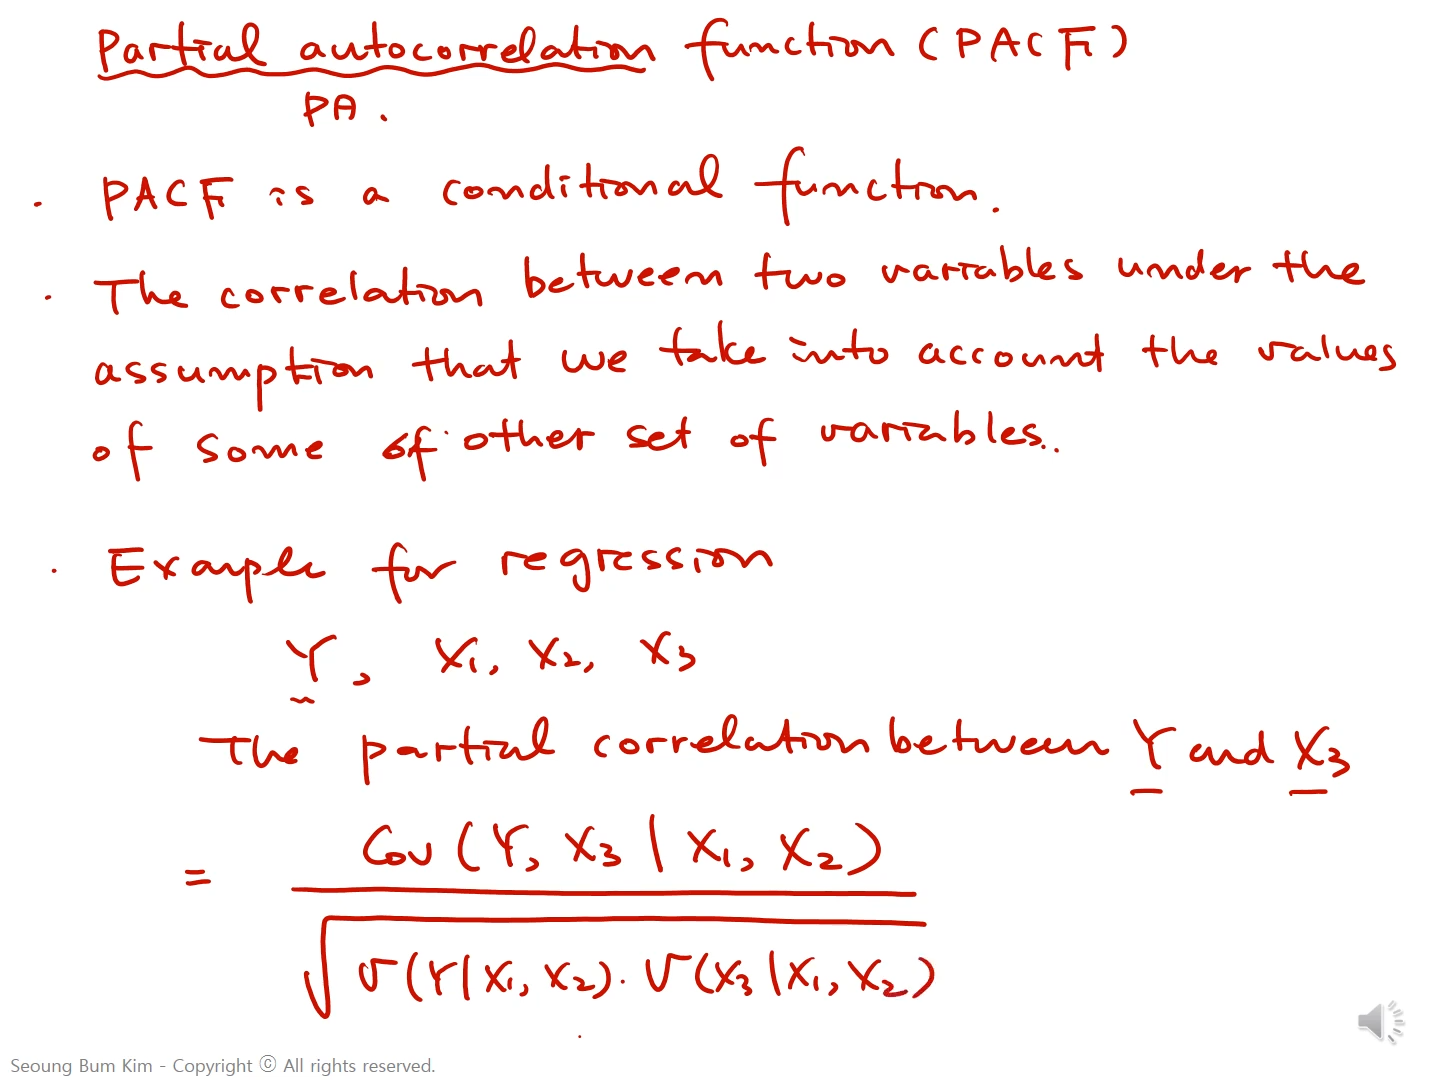 Partial autocorrelation function (PACF)
PA.
· PACF is a conditional function.
· The correlation between two variables under the
assumption that we take into account the values
of some of other set of variables..
· Example for regression
Y, X1, X2, X3
The partial correlation between Y and X3
= Cov (Y, X3 | X1, X2)
√ V(Y|X1, X2) · V(X3|X1, X2)
Seoung Bum Kim - Copyright ⓒ All rights reserved.